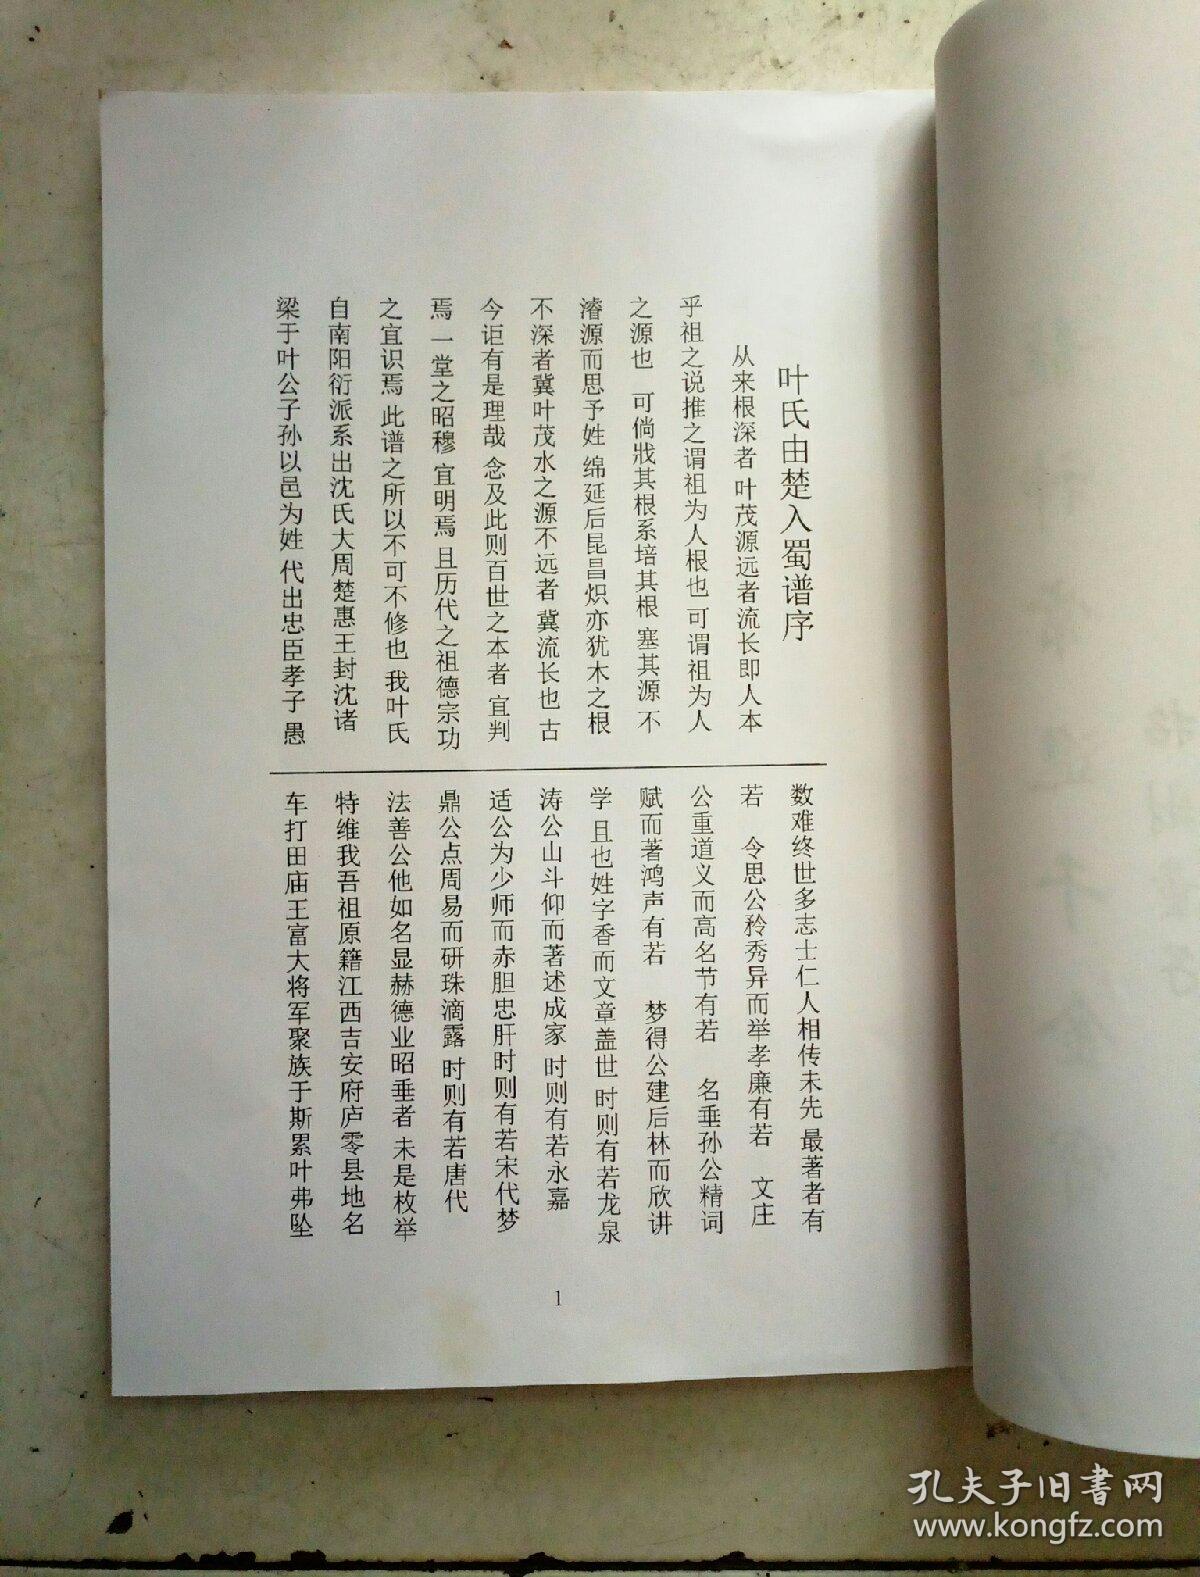 叶氏由楚入蜀谱序
从来根深者 叶茂源远者流长即人本
乎祖之说推之谓祖为人根也 可谓祖为人
之源也 可倘戕其根系培其根 塞其源 不
濬源而思予姓 绵延后昆昌炽亦犹木之根
不深者冀叶茂水之源不远者 冀流长也 古
今讵有是理哉 念及此则百世之本者 宜判
焉 一堂之昭穆 宜明焉 且历代之祖德宗功
之宜识焉 此谱之所以不可不修也 我叶氏
自南阳衍派系出沈氏大周楚惠王封沈诸
梁于叶公子孙以邑为姓 代出忠臣孝子 愚
数难终世多志士仁人相传未先 最著者有
若 令思公矜秀异而举孝廉有若 文庄
公重道义而高名节有若 名垂孙公精词
赋而著鸿声有若 梦得公建后林而欣讲
学 且也姓字香而文章盖世 时则有若龙泉
涛公山斗仰而著述成家 时则有若永嘉
适公为少师而赤胆忠肝时则有若宋代梦
鼎公点周易而研珠滴露 时则有若唐代
法善公他如名显赫德业昭垂者 未是枚举
特维我吾祖原籍江西吉安府庐零县地名
车打田庙王富大将军聚族于斯累叶弗坠
1
孔夫子旧书网
www.kongfz.com